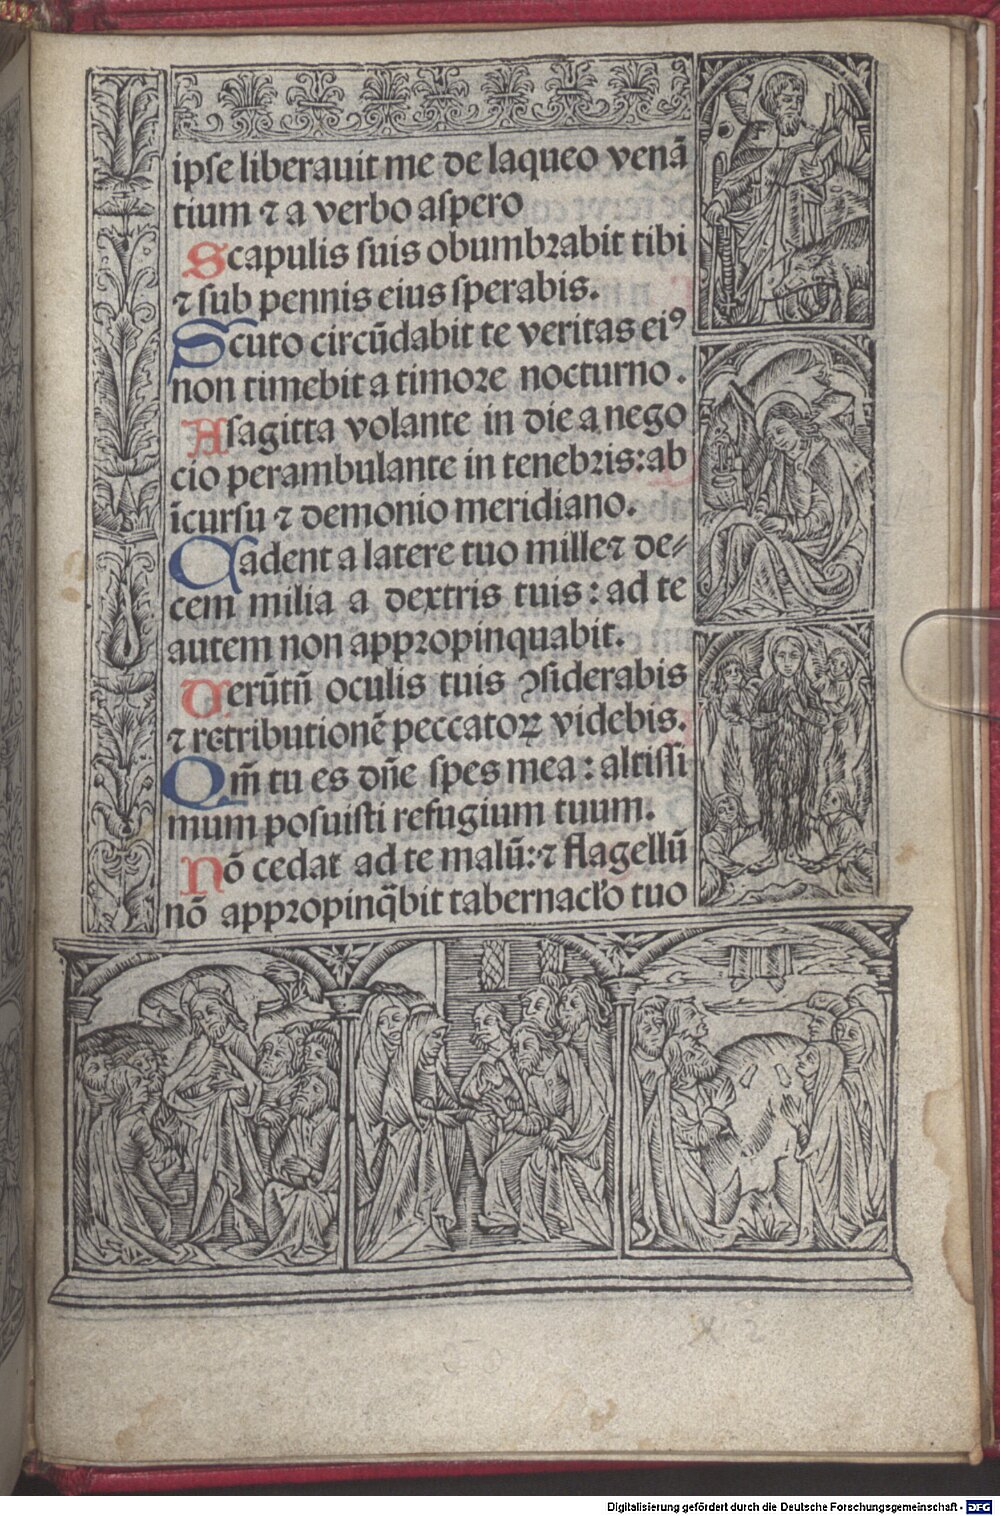 ipse liberauit me de laqueo venã
tium ⁊ a verbo aspero
Scapulis suis obumbrabit tibi
⁊ sub pennis eius sperabis.
Scuto circũdabit te veritas eiꝰ
non timebit a timore nocturno.
A sagitta volante in die a nego
cio perambulante in tenebris: ab
ĩcursu ⁊ demonio meridiano.
Cadent a latere tuo mille ⁊ de⸗
cem milia a dextris tuis: ad te
autem non appropinquabit.
Uerũtñ oculis tuis ꝯsiderabis
⁊ retributionẽ peccatoꝝ videbis.
Qm̃ tu es dñe spes mea: altissi
mum posuisti refugium tuum.
Nõ cedat ad te malũ: ⁊ flagellũ
nõ appropinq̃bit tabernacl'o tuo
Digitalisierung gefördert durch die Deutsche Forschungsgemeinschaft - DFG